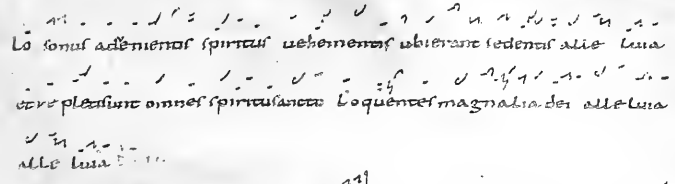 Lo sonus aduenientis spiritus uehementis ubi erant sedentis alle luia
et repleti sunt omnes spiritu sancto Loquentes magnalia dei alleluia
alle luia